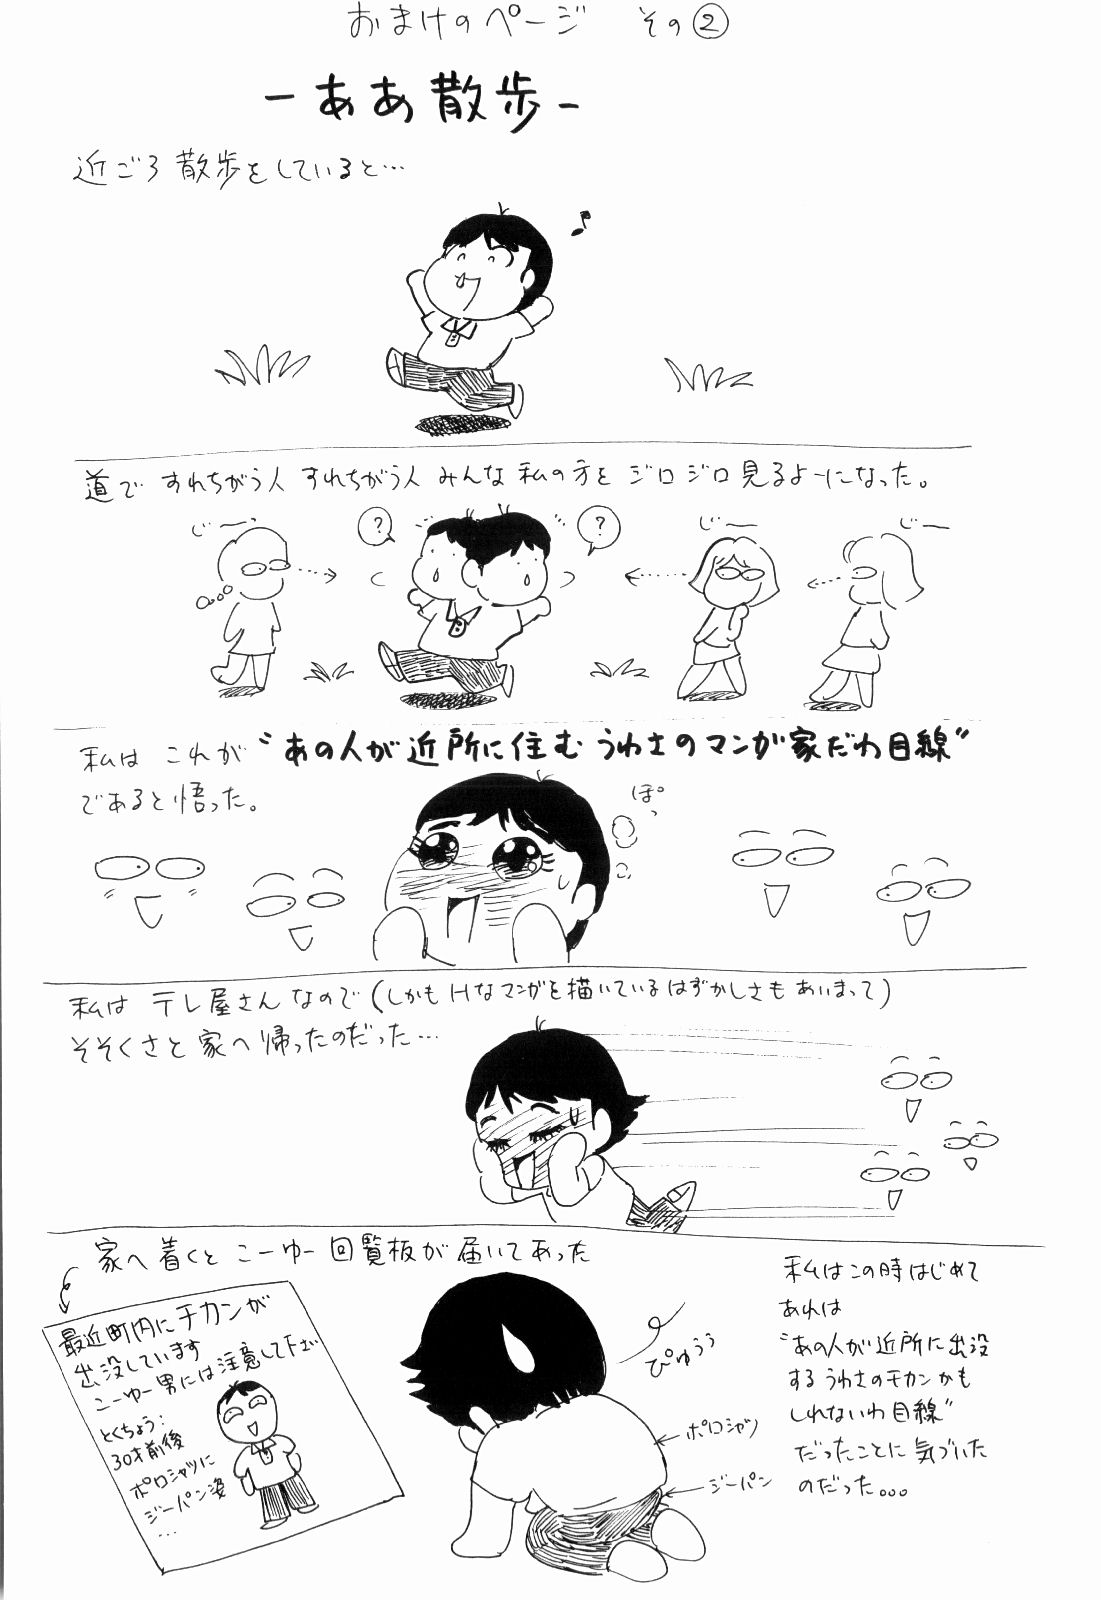 おまけのページ その②
-ああ散歩-
近ごろ散歩をしていると…
道ですれちがう人すれちがう人みんな私の方をジロジロ見るよーになった。
じーっ
?
?
じー
じー
私はこれが“あの人が近所に住むうわさのマンガ家だわ目線”
であると悟った。
ぽっ
私はテレ屋さんなので(しかもHなマンガを描いているはずかしさもあいまって)
そそくさと家へ帰ったのだった…
家へ着くとこーゆー回覧板が届いてあった
最近町内にチカンが
出没しています
こーゆー男には注意して下さい
とくちょう:
30才前後
ポロシャツに
ジーパン姿
…
ぴゅうぅ
ポロシャツ
ジーパン
私はこの時はじめて
あれは
“あの人が近所に出没
するうわさのチカンかも
しれないわ目線”
だったことに気づいた
のだった。。。